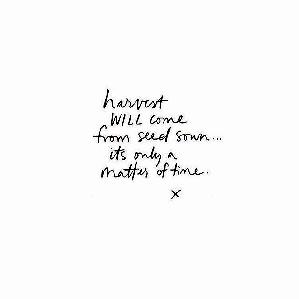 harvest
WILL come
from seed sown...
it's only a
matter of time.
x